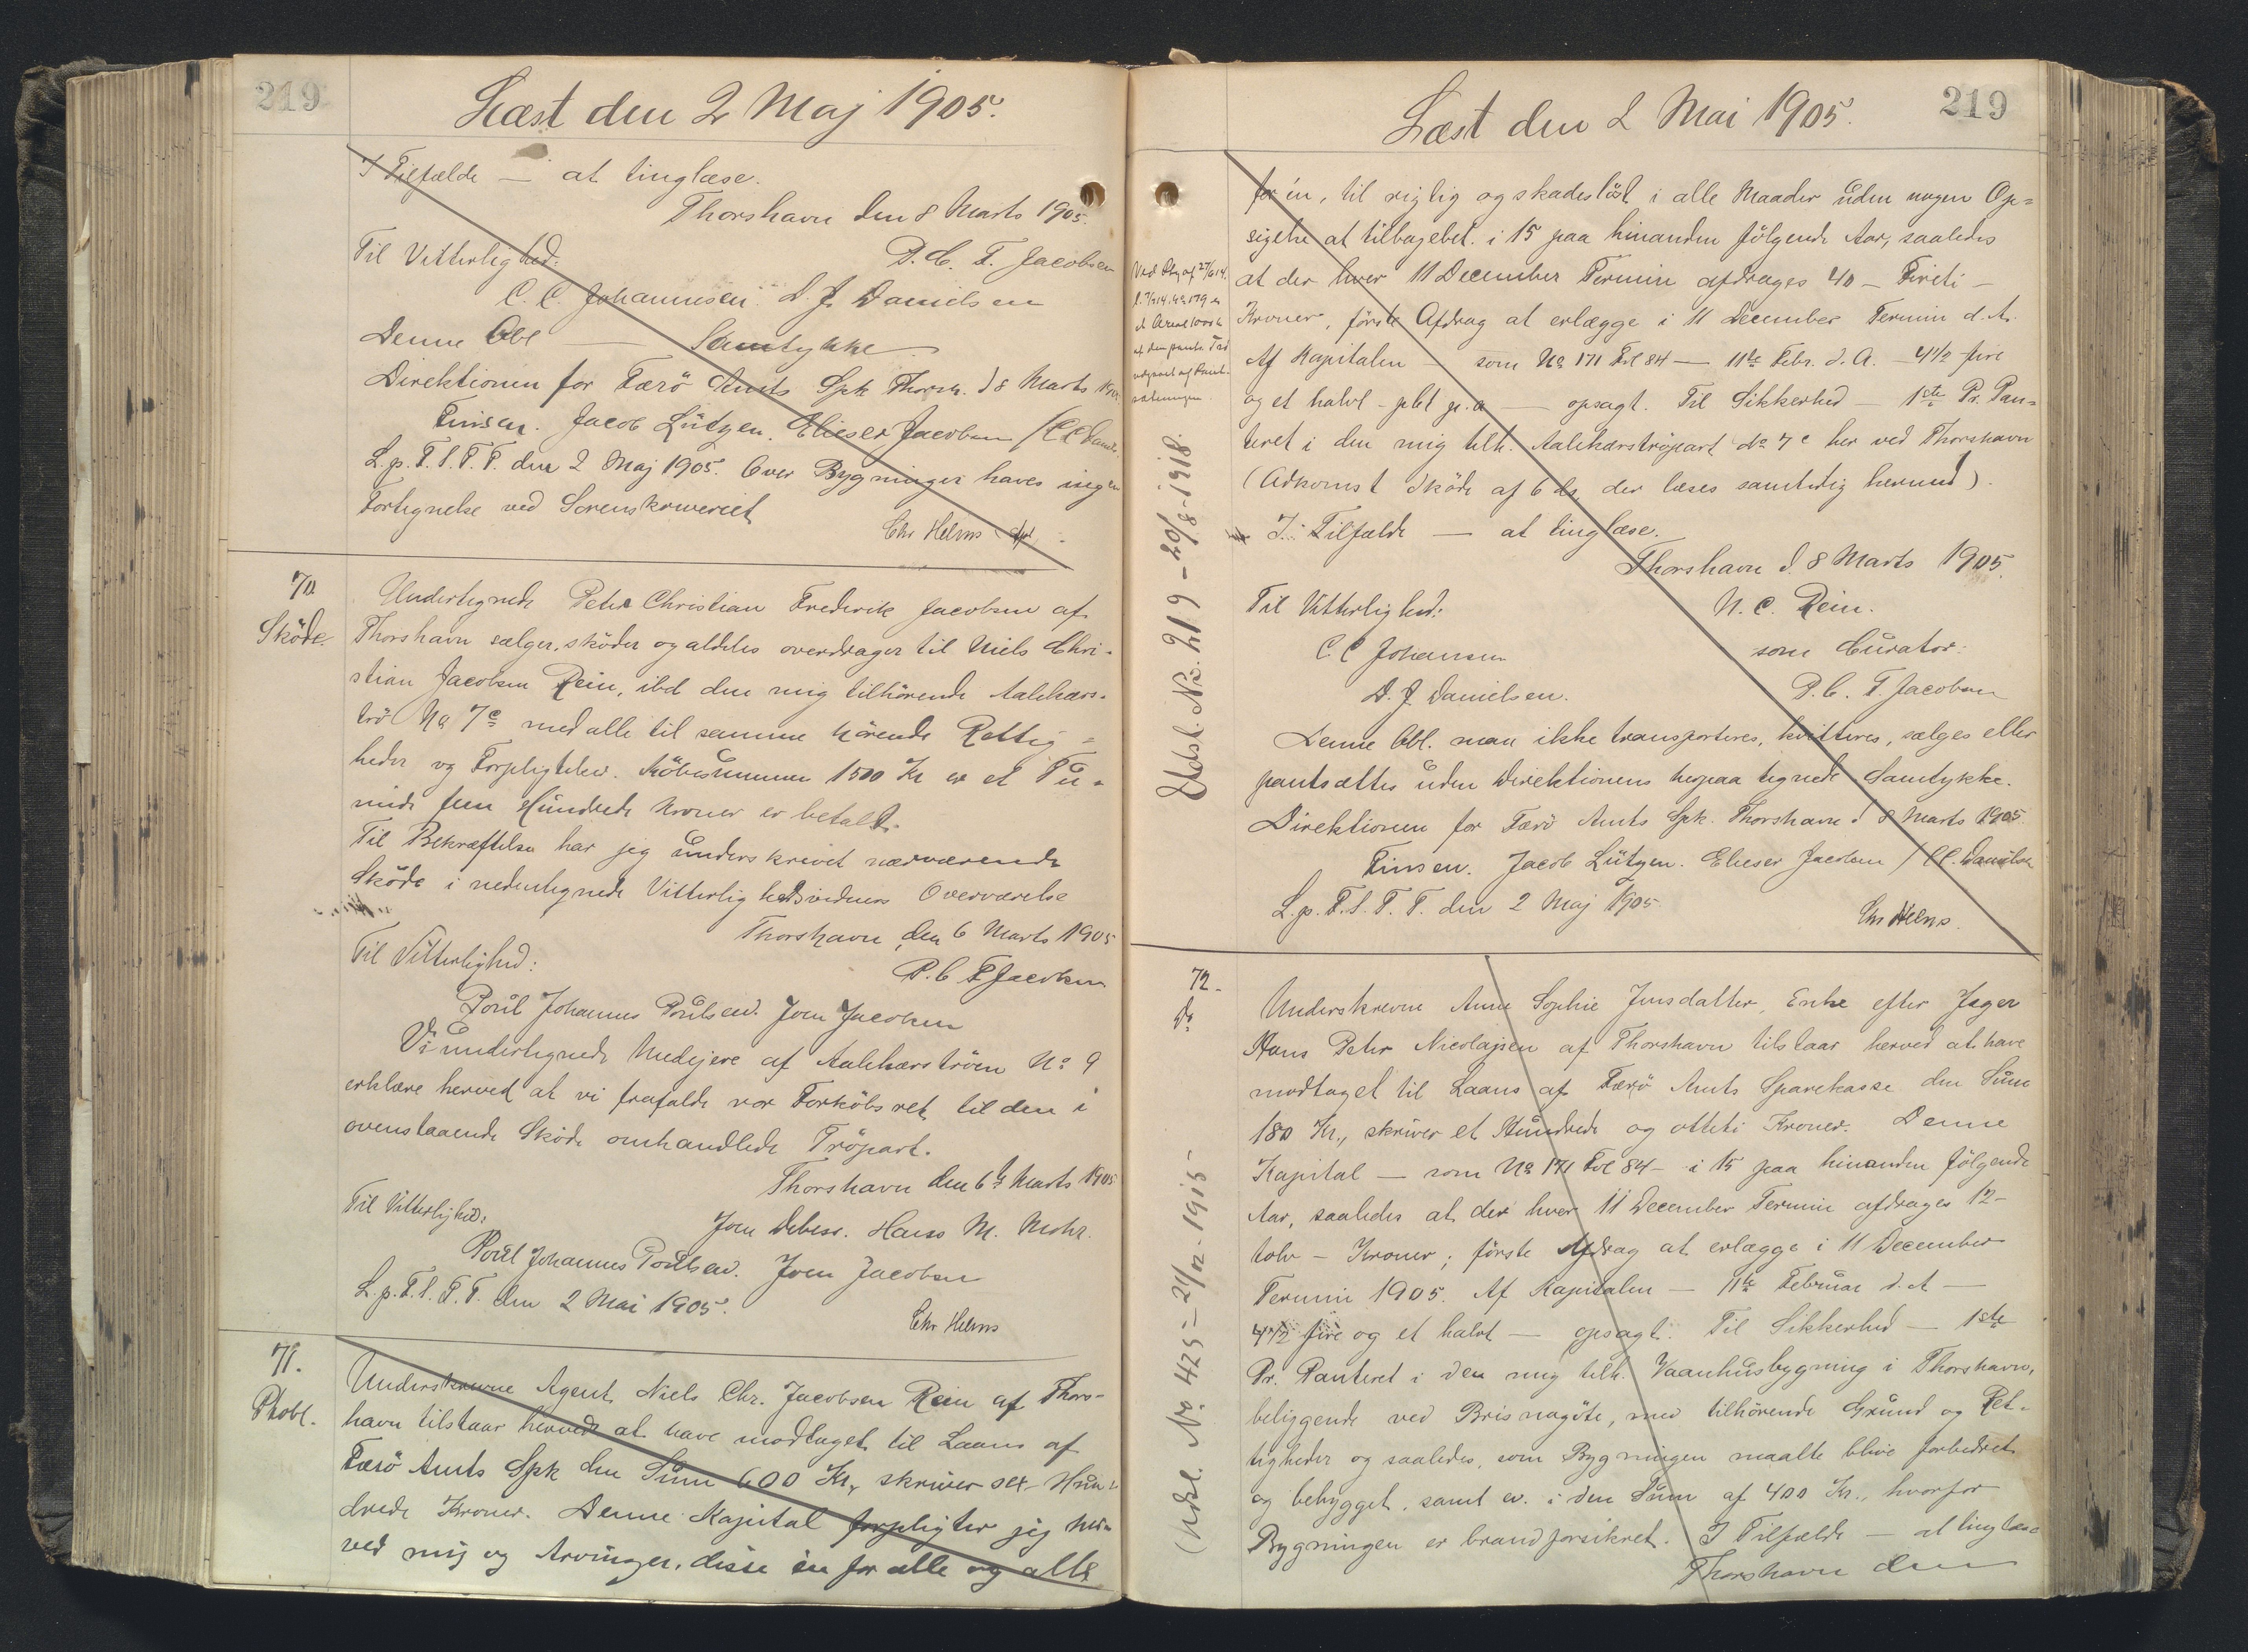 219
Læst den 2 Maj 1905.
I Tilfælde — at tinglæse.
Thorshavn den 8 Marts 1905.
Til Vitterlighed:
P. C. F. Jacobsen
C. C. Johannesen. D. J. Danielsen
Denne Obl — Samtykke
Direktionen for Færö Amts Spk Thorsh. d 8 Marts 1905.
Finsen. Jacob Lützen. Elieser Jacobsen / C C Daniels.
L. p. F. S. T. T. den 2 Maj 1905. Over Bygninger haves ingen
Fortegnelse ved Sorenskriveriet
Chr Helms
70
Sköde.
Undertegnede Peter Christian Frederik Jacobsen af
Thorshavn sælger, sköder og aldeles overdrager til Niels Chri-
stian Jacobsen Rein, ibd den mig tilhörende Aalekærs-
trö No 7c med alle til samme hörende Rettig=
heder og Forpligtelser. Köbesummen 1500 Kr er et Tu-
sinde fem Hundrede Kroner er betalt.
Til Bekræftelse har jeg underskrevet nærværende
Sköde i nedentegnede Vitterlighedsvidners Overværelse
Thorshavn, den 6 Marts 1905
Til Vitterlighed:
P. C F Jacobsen
Poul Johannes Poulsen. Joen Jacobsen
Vi undertegnede Medejere af Aalekærströen No 9
erklære herved at vi frafalde vor Forköbsret til den i
ovenstaaende Sköde omhandlede Tröpart.
Thorshavn den 6te Marts 1905
Til Vitterlighed:
Joen Debess. Hans M. Mohr.
Poul Johannes Poulsen. Joen Jacobsen
L. p. F. S. T. T. den 2 Mai 1905.
Chr Helms
71.
Ptobl.
Underskrevne Agent Niels Chr. Jacobsen Rein af Thors-
havn tilstaar herved at have modtaget til Laans af
Færö Amts Spk den Sum 600 Kr, skriver sex Hun-
drede Kroner. Denne Kapital forpligter jeg her-
ved mig og Arvinger, disse én for alle og alle
219
Læst den 2 Mai 1905.
for én, til rigtig og skadeslöst i alle Maader uden nogen Op=
sigelse at tilbagebet. i 15 paa hinanden fölgende Aar, saaledes
at der hver 11 December Termin afdrages 40 — Fireti —
Kroner, förste Afdrag at erlægge i 11 December Termin d. A.
Af Kapitalen — som No 171 Fol 84 — 11te Febr. d. A. — 4½ fire
og et halvt — pCt p. a — opsagt. Til Sikkerhed — 1ste Pr. Pan=
teret i den mig tilh. Aalekærströpart No 7c her ved Thorshavn
(Adkomst Sköde af 6 ds, der læses samtidig hermed).
I Tilfælde — at tinglæse.
Thorshavn d. 8 Marts 1905.
Til Vitterlighed:
N. C. Rein.
C. C Johansen
som Curator:
D. J. Danielsen.
P. C. F. Jacobsen
Denne Obl. maa ikke transporteres, kvitteres, sælges eller
pantsættes uden Direktionens herpaa tegnede Samtykke.
Direktionen for Færö Amts Spk. Thorshavn d 8 Marts 1905.
Finsen. Jacob Lützen. Elieser Jacobsen / CC. Danielsen
L. p. F. S. T. T. den 2 Maj 1905.
Chr Helms.
Ved Skj af 27/6 14.
Udsl. No. 219 - 20/8 - 1918.
72.
Do
Underskrevne Anne Sophie Jensdatter, Enke efter Jager
Hans Peter Nicolajsen af Thorshavn tilstaar herved at have
modtaget til Laans af Færö Amts Sparekasse den Sum
180 Kr., skriver et Hundrede og otteti Kroner. Denne
Kapital — som No 171 Fol 84 — i 15 paa hinanden fölgende
Aar, saaledes at der hver 11 December Termin afdrages 12 —
tolv — Kroner; förste Afdrag at erlægge i 11 December
Termin 1905. Af Kapitalen — 11te Februar d. A —
4½ fire og et halvt — opsagt. Til Sikkerhed — 1ste
Pr. Panteret i den mig tilh. Vaanhusbygning i Thorshavn,
beliggende ved Brisnagöte, med tilhörende Grund og Ret-
tigheder og saaledes, som Bygningen maatte blive forbedret
og bebygget, samt ev. i den Sum af 400 Kr., hvorfor
Bygningen er brandforsikret. I Tilfælde — at tinglæse
Thorshavn den
Udsl. No. 425 - 21/12 - 1915